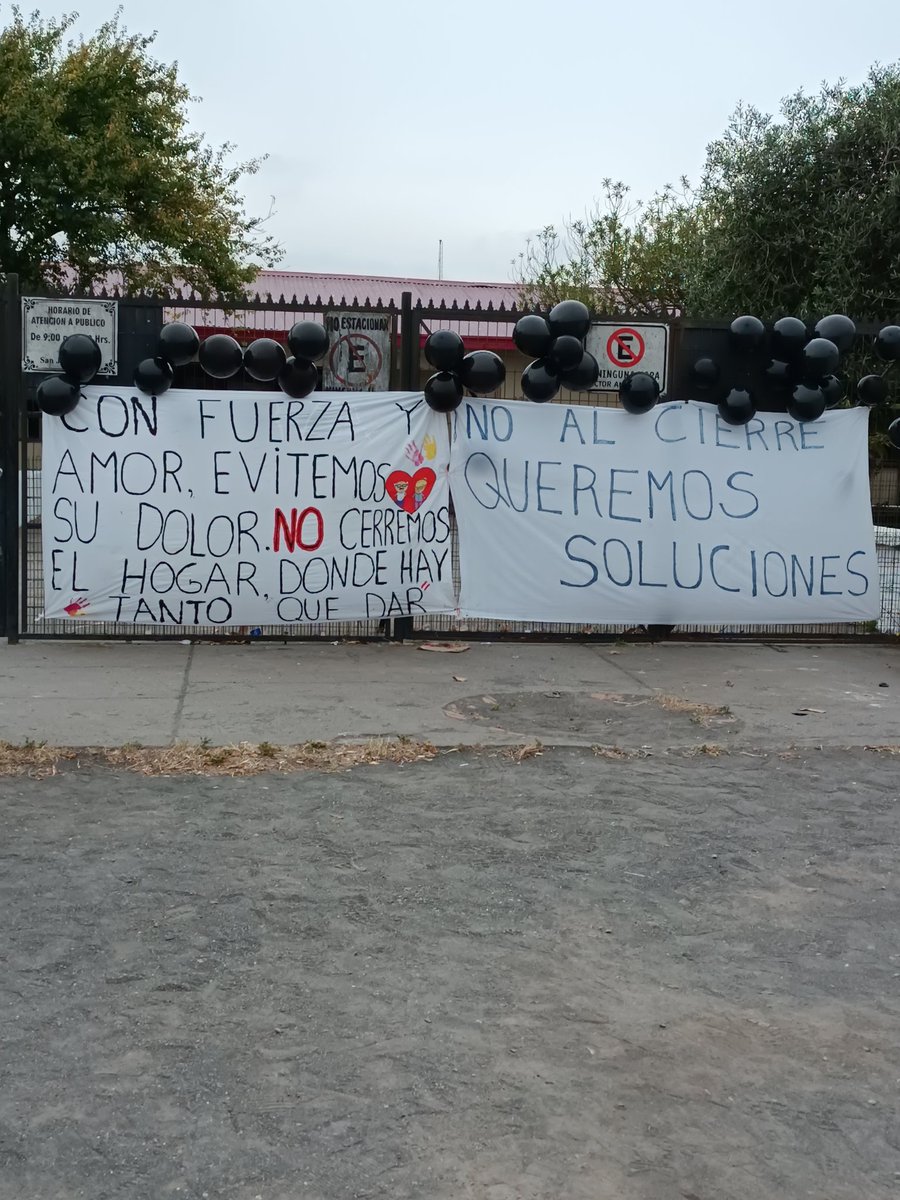 HORARIO DE
ATENCION A PUBLICO
De 9:00
Hrs.
NO ESTACIONAR
E
E
CON FUERZA Y
AMOR, EVITEMOS
SU DOLOR. NO CERREMOS
EL HOGAR, DONDE HAY
TANTO QUE DAR
NO AL CIERRE
QUEREMOS
SOLUCIONES